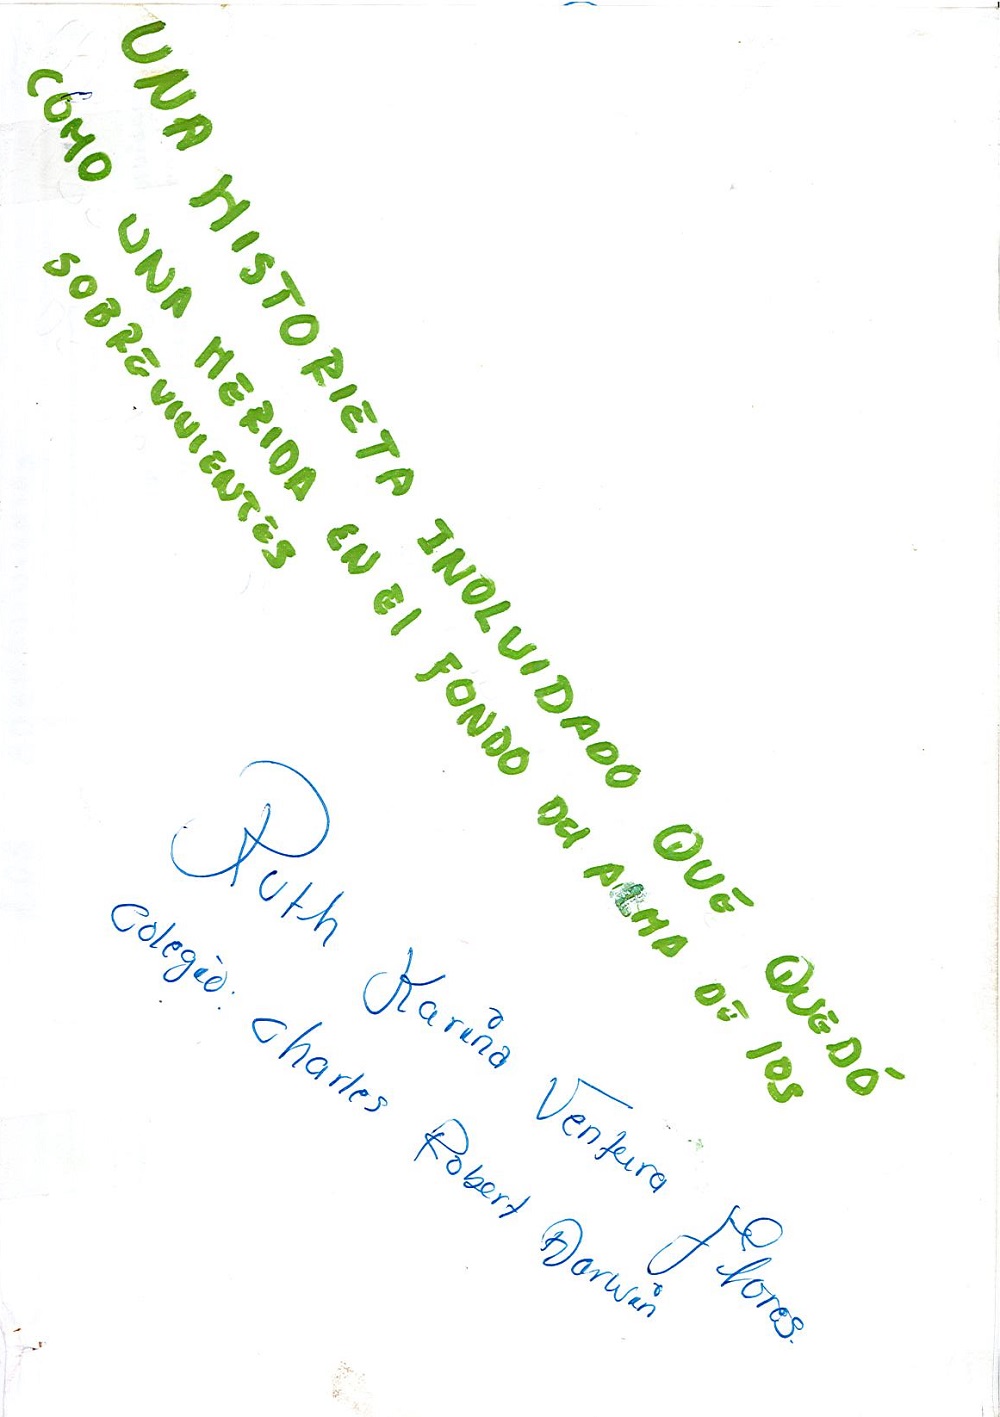 UNA HISTORIETA INOLUIDADO QUE QUEDÓ
COMO UNA HERIDA EN El FONDO DEl ALMA DE lOS
SOBREVIVIENTES
Ruth Karina Ventura Flores.
Colegio: Charles Robert Darwin